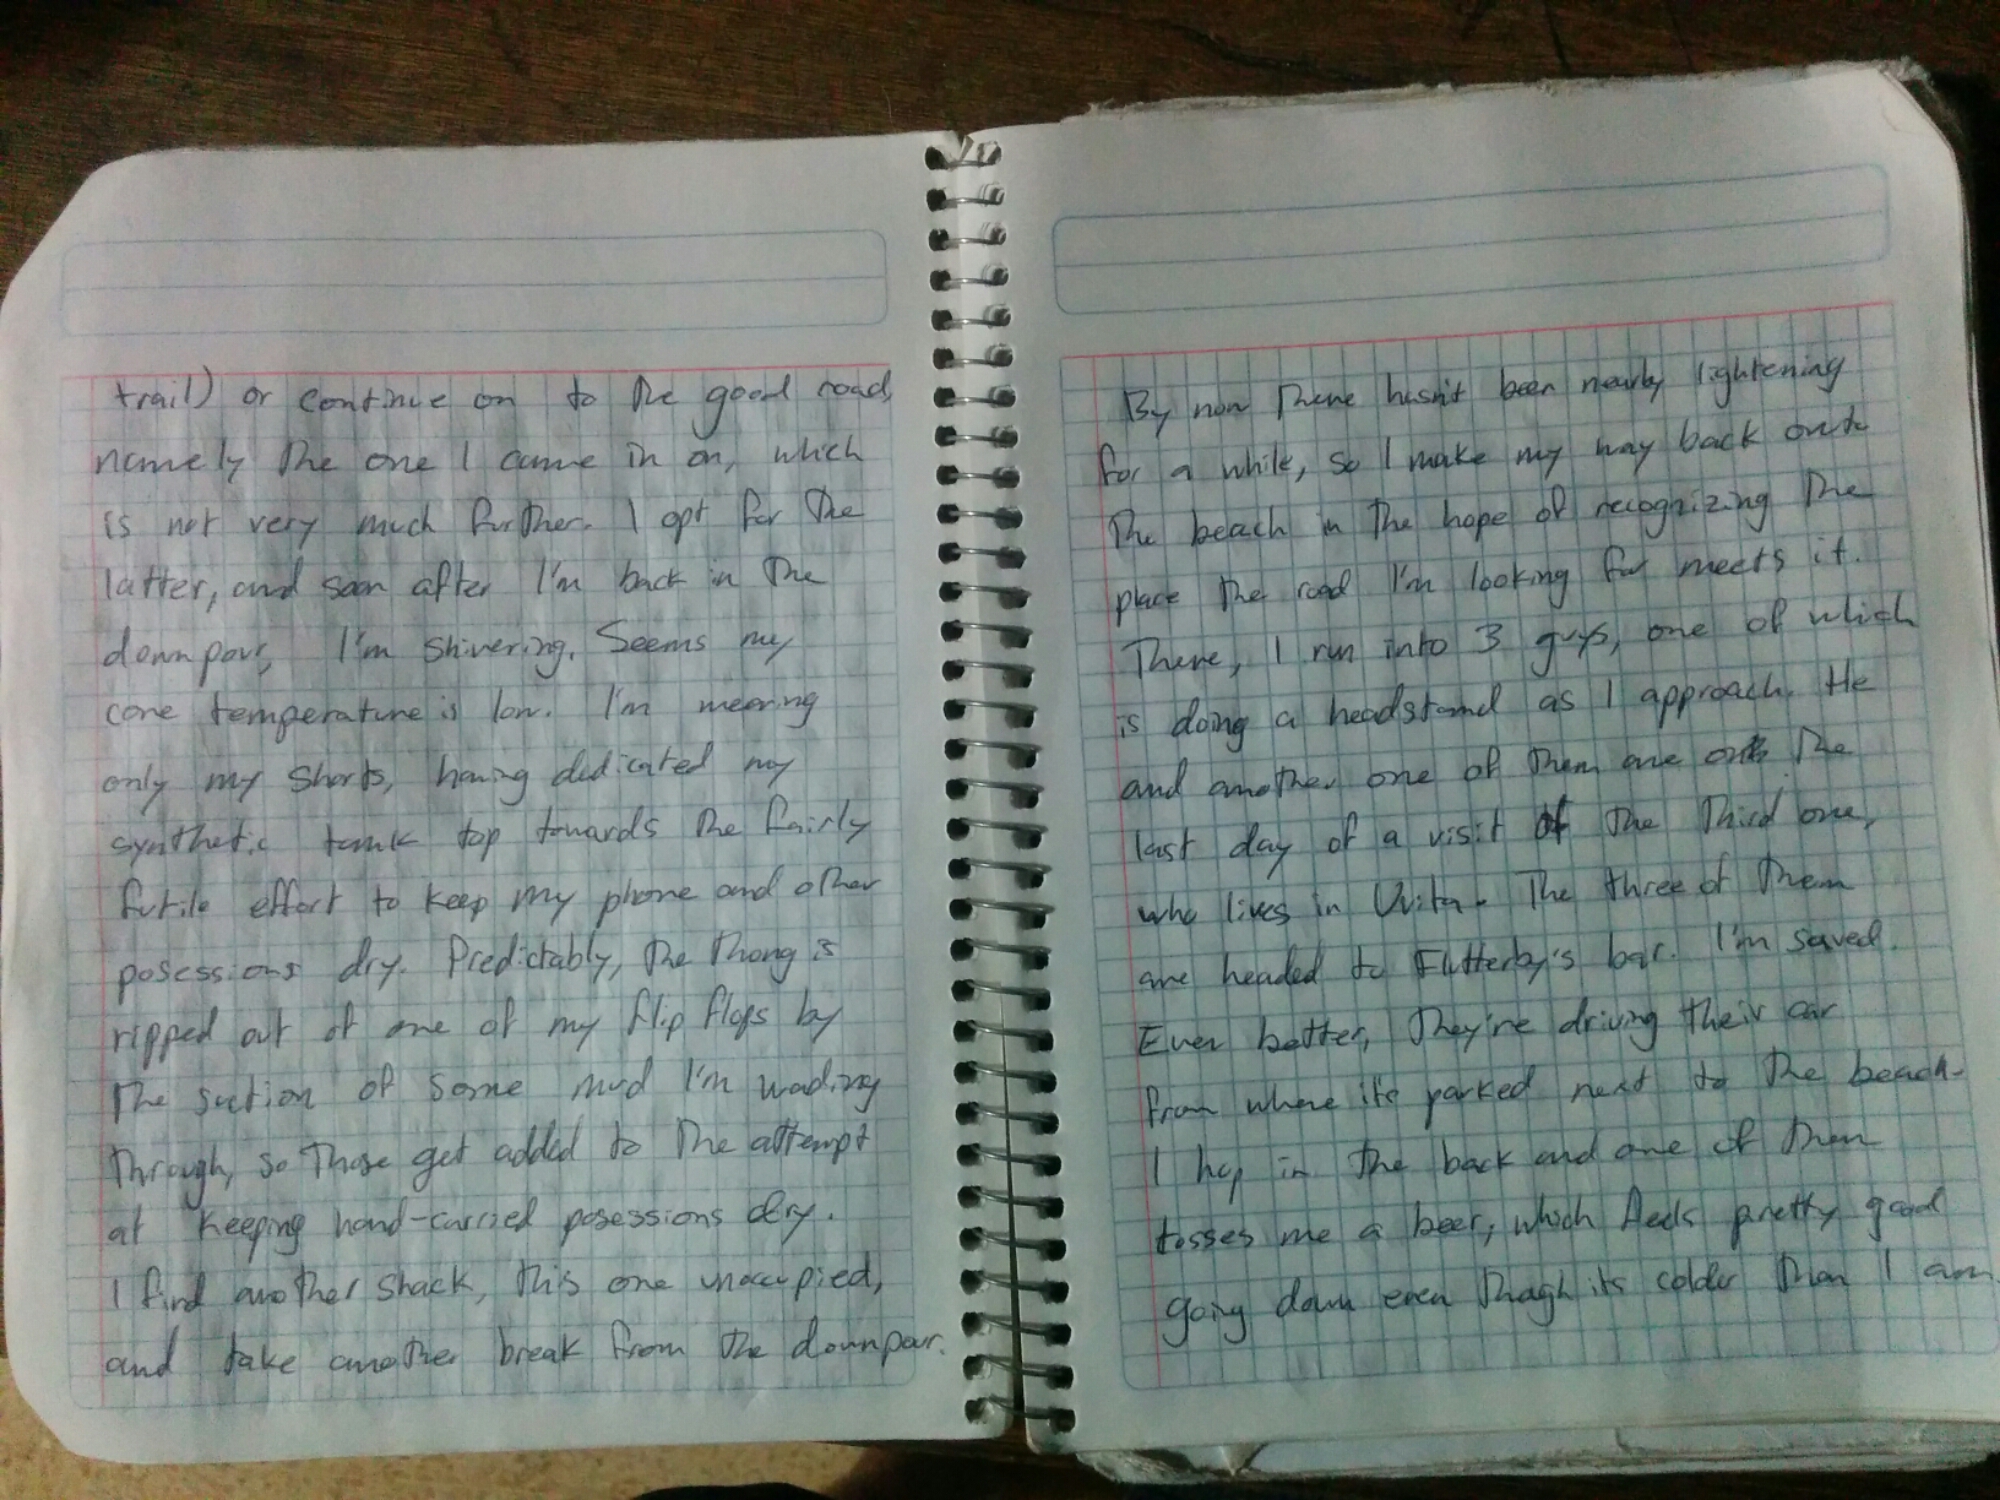 trail) or continue on to the good road,
namely the one I came in on, which
is not very much further. I opt for the
latter, and soon after I'm back in the
downpour, I'm shivering. Seems my
core temperature is low. I'm wearing
only my shorts, having dedicated my
synthetic tank top towards the fairly
futile effort to keep my phone and other
posessions dry. Predictably, the thong is
ripped out of one of my flip flops by
the suction of some mud I'm wading
through, so those get added to the attempt
at keeping hand-carried posessions dry.
I find another shack, this one unoccupied,
and take another break from the downpour.
By now there hasn't been nearby lightening
for a while, so I make my way back onto
the beach in the hope of recognizing the
place the road I'm looking for meets it.
There, I run into 3 guys, one of which
is doing a headstand as I approach. He
and another one of them are on the
last day of a visit of the third one,
who lives in Uvita. The three of them
are headed to Flutterby's bar. I'm saved.
Even better, they're driving their car
from where it's parked next to the beach.
I hop in the back and one of them
tosses me a beer, which feels pretty good
going down even though its colder than I am